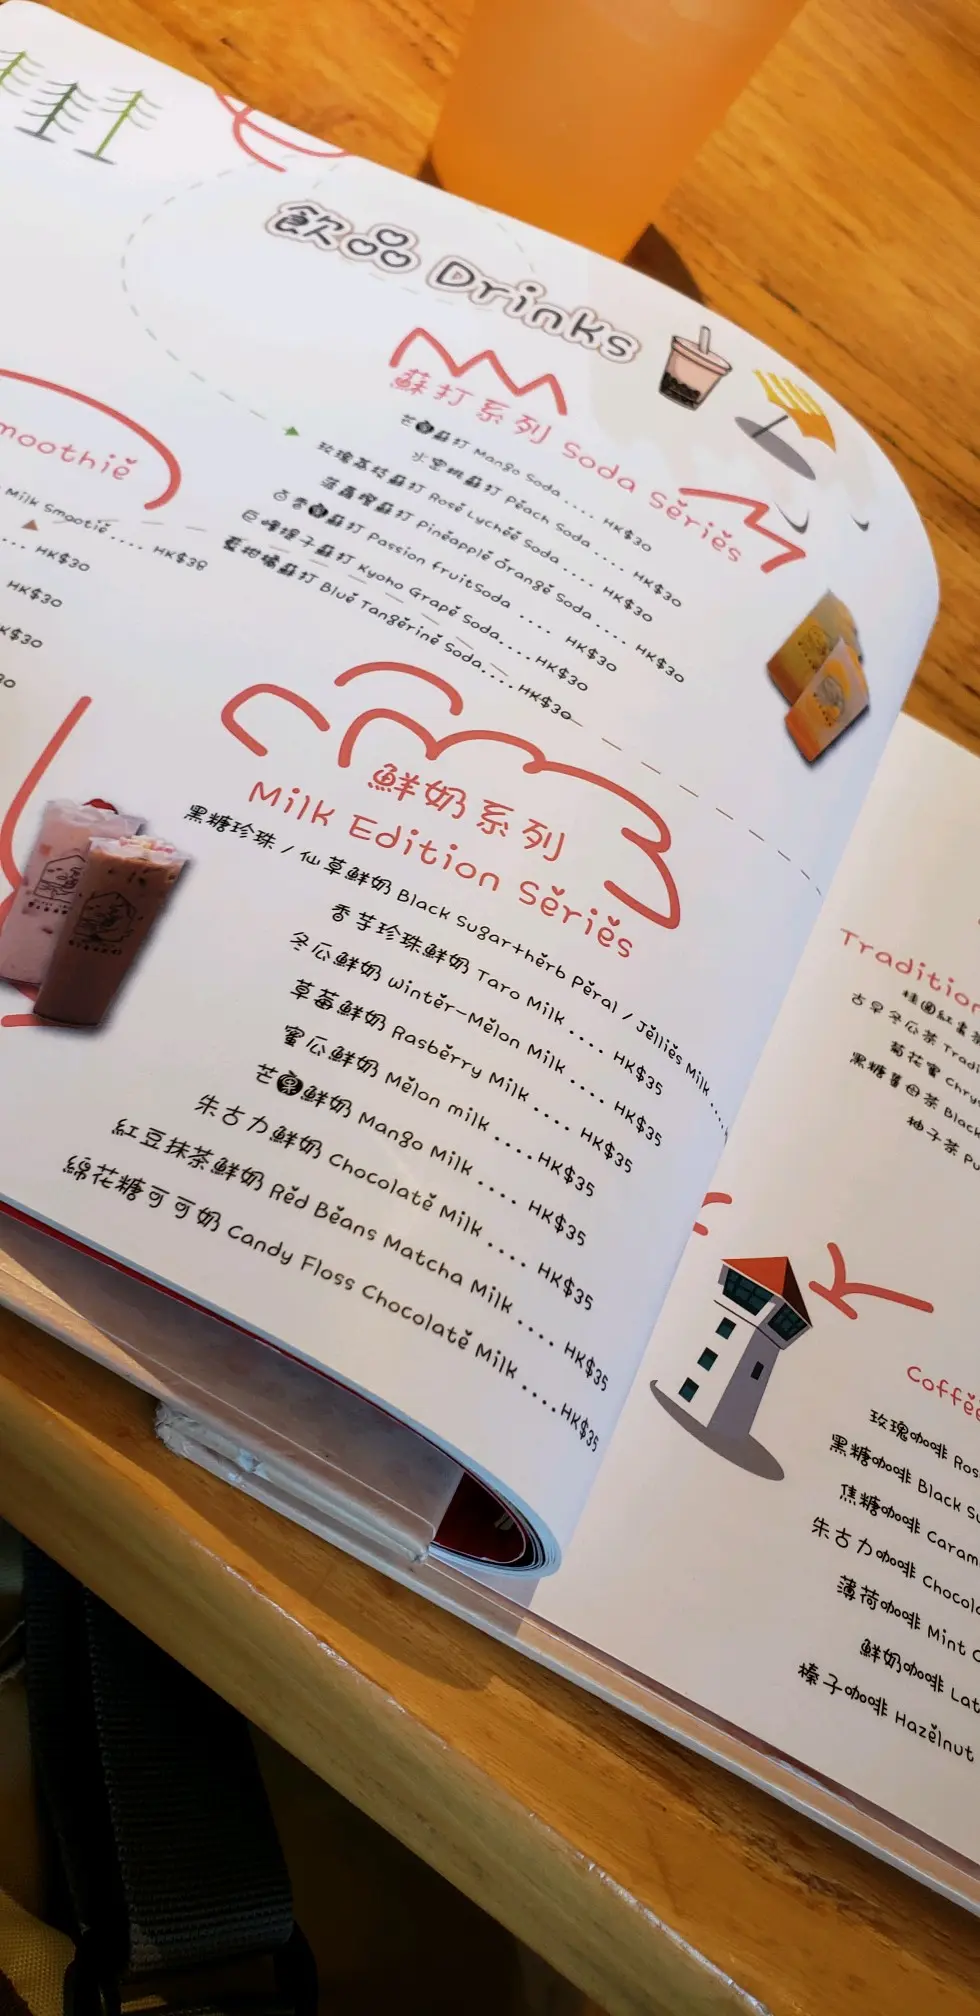 飲品 Drinks
蘇打系列 Soda Series
芒果蘇打 Mango Soda .... HK$30
水蜜桃蘇打 Peach Soda .... HK$30
玫瑰荔枝蘇打 Rose Lychee Soda .... HK$30
菠蘿橙蘇打 Pineapple Orange Soda .... HK$30
百香果蘇打 Passion FruitSoda .... HK$30
巨峰提子蘇打 Kyoho Grape Soda.... HK$30
藍柑橘蘇打 Blue Tangerine Soda.... HK$30
鮮奶系列
Milk Edition Series
黑糖珍珠 / 仙草鮮奶 Black Sugar+herb Peral / Jellies Milk ....
香芋珍珠鮮奶 Taro Milk .... HK$35
冬瓜鮮奶 Winter-Melon Milk .... HK$35
草莓鮮奶 Rasberry Milk .... HK$35
蜜瓜鮮奶 Melon milk .... HK$35
芒果鮮奶 Mango Milk .... HK$35
朱古力鮮奶 Chocolate Milk .... HK$35
紅豆抹茶鮮奶 Red Beans Matcha Milk .... HK$35
綿花糖可可奶 Candy Floss Chocolate Milk .... HK$35
moothie
Milk Smootie .... HK$38
.... HK$30
HK$30
K$30
30
Tradition
桂圓紅棗茶
古早冬瓜茶 Tradi
菊花蜜 Chry
黑糖薑母茶 Black
柚子茶 Pu
Coffee
玫瑰咖啡 Ros
黑糖咖啡 Black Su
焦糖咖啡 Caram
朱古力咖啡 Chocola
薄荷咖啡 Mint C
鮮奶咖啡 Lat
榛子咖啡 Hazelnut